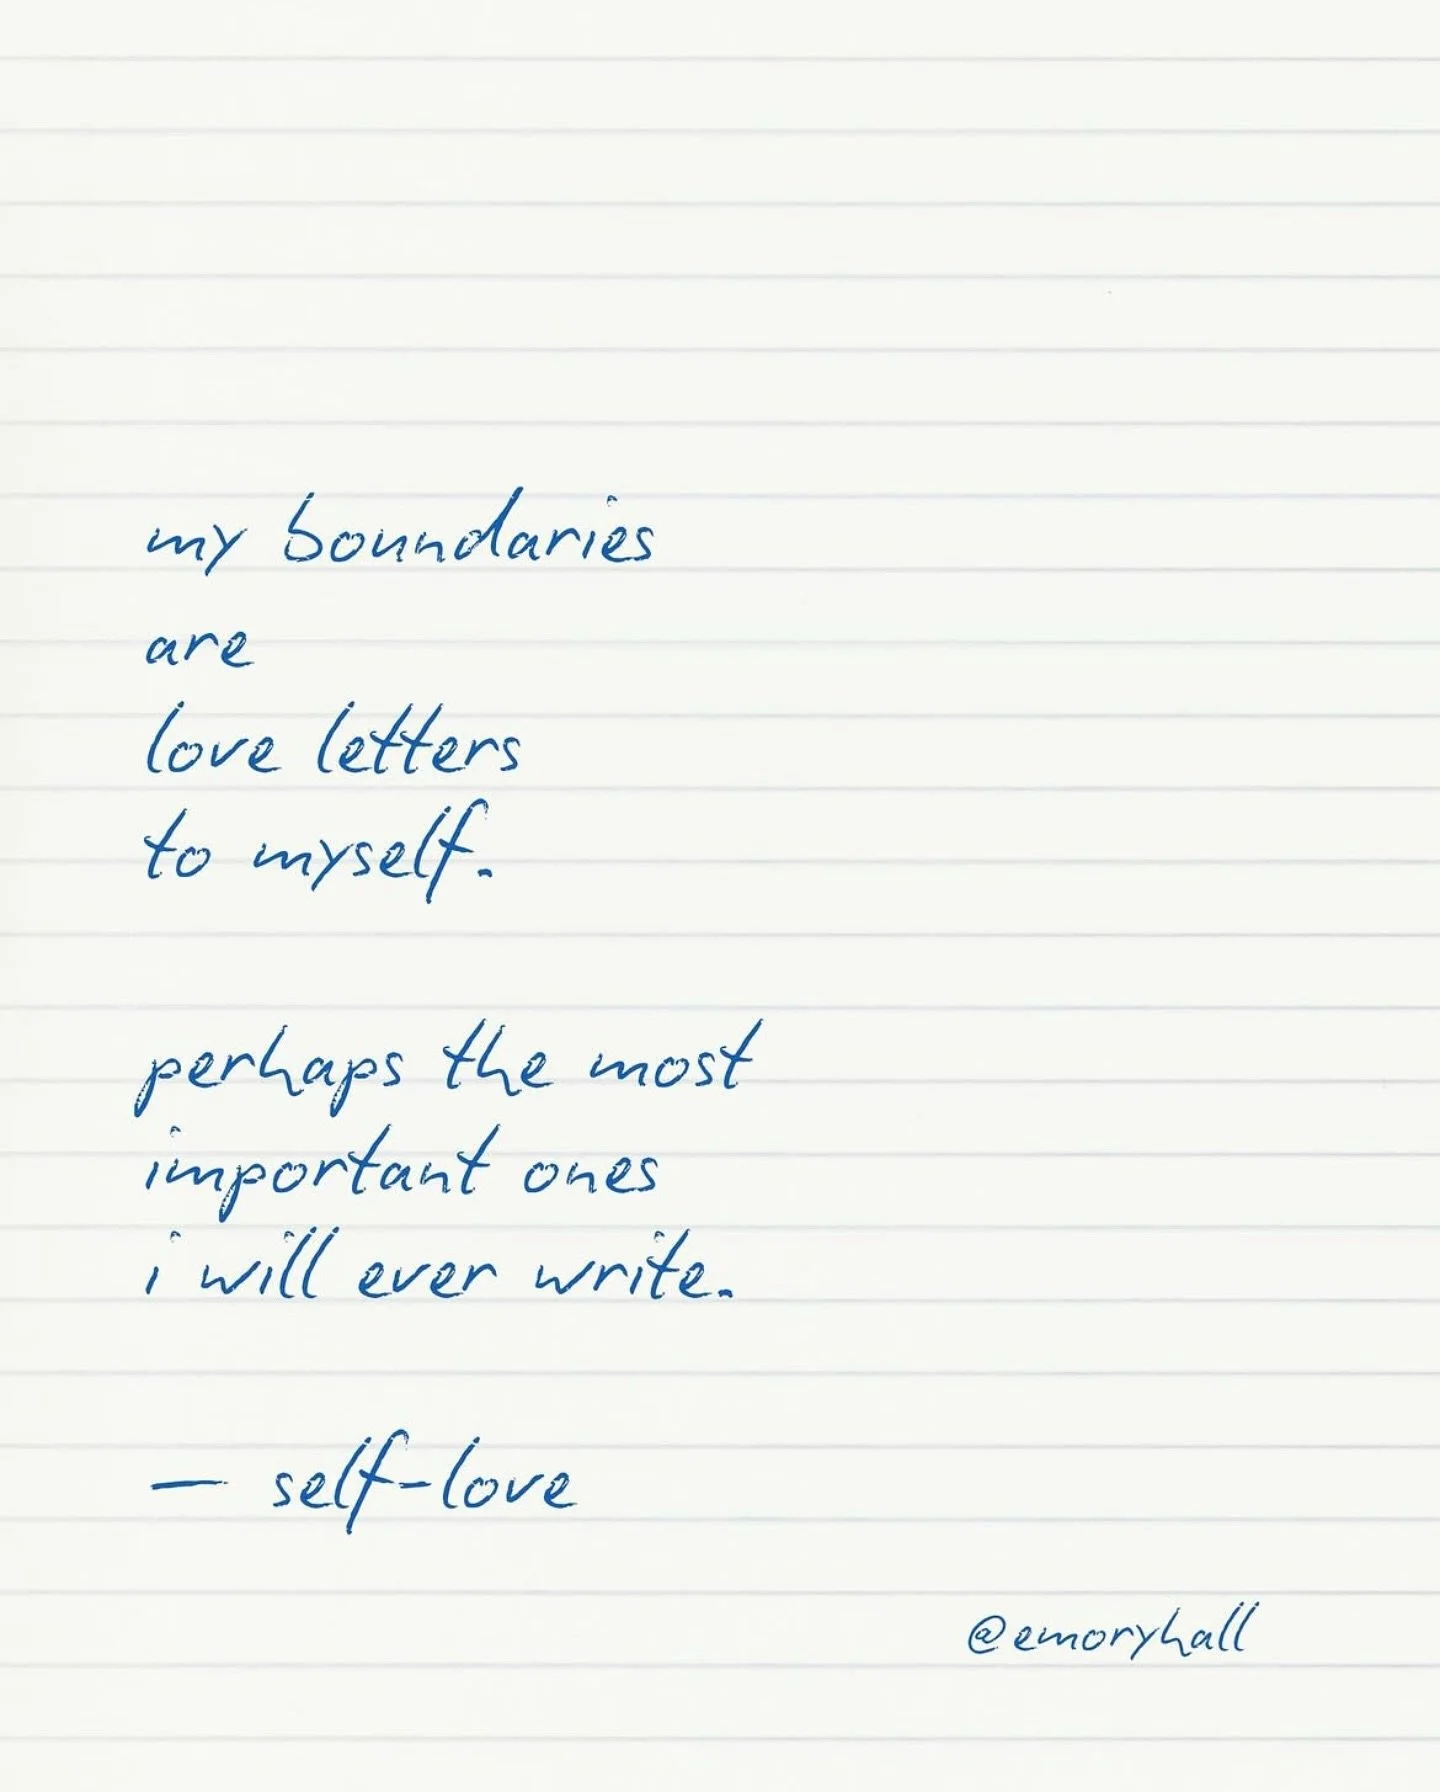 my boundaries
are
love letters
to myself.
perhaps the most
important ones
i will ever write.
— self-love
@emoryhall